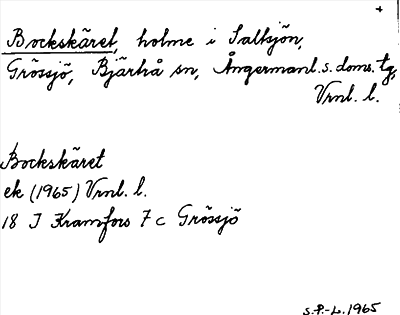 +
Bockskäret, holme i Saltsjön,
Grössjö, Bjärtrå sn, Ångermanl. s. doms. tg,
Vrnl. l.
Bockskäret
ek (1965) Vrnl. l.
18 J Kramfors 7 c Grössjö
S.P.-L. 1965